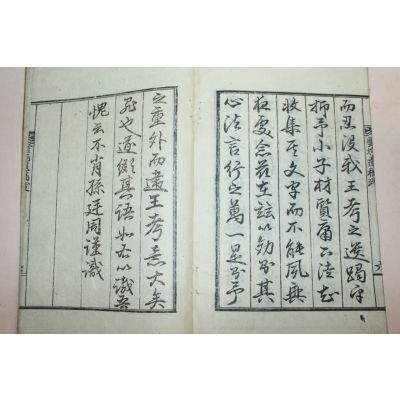 而忍沒我王考之遺躅乎
抑予小子材質庸
收集其文字而不能夙無
夜處念茲在茲以効其
心法言行之萬一是予
之重外而遺王考意大矣
也遂綴其語如右以識吾
愧云不肖孫廷周謹識